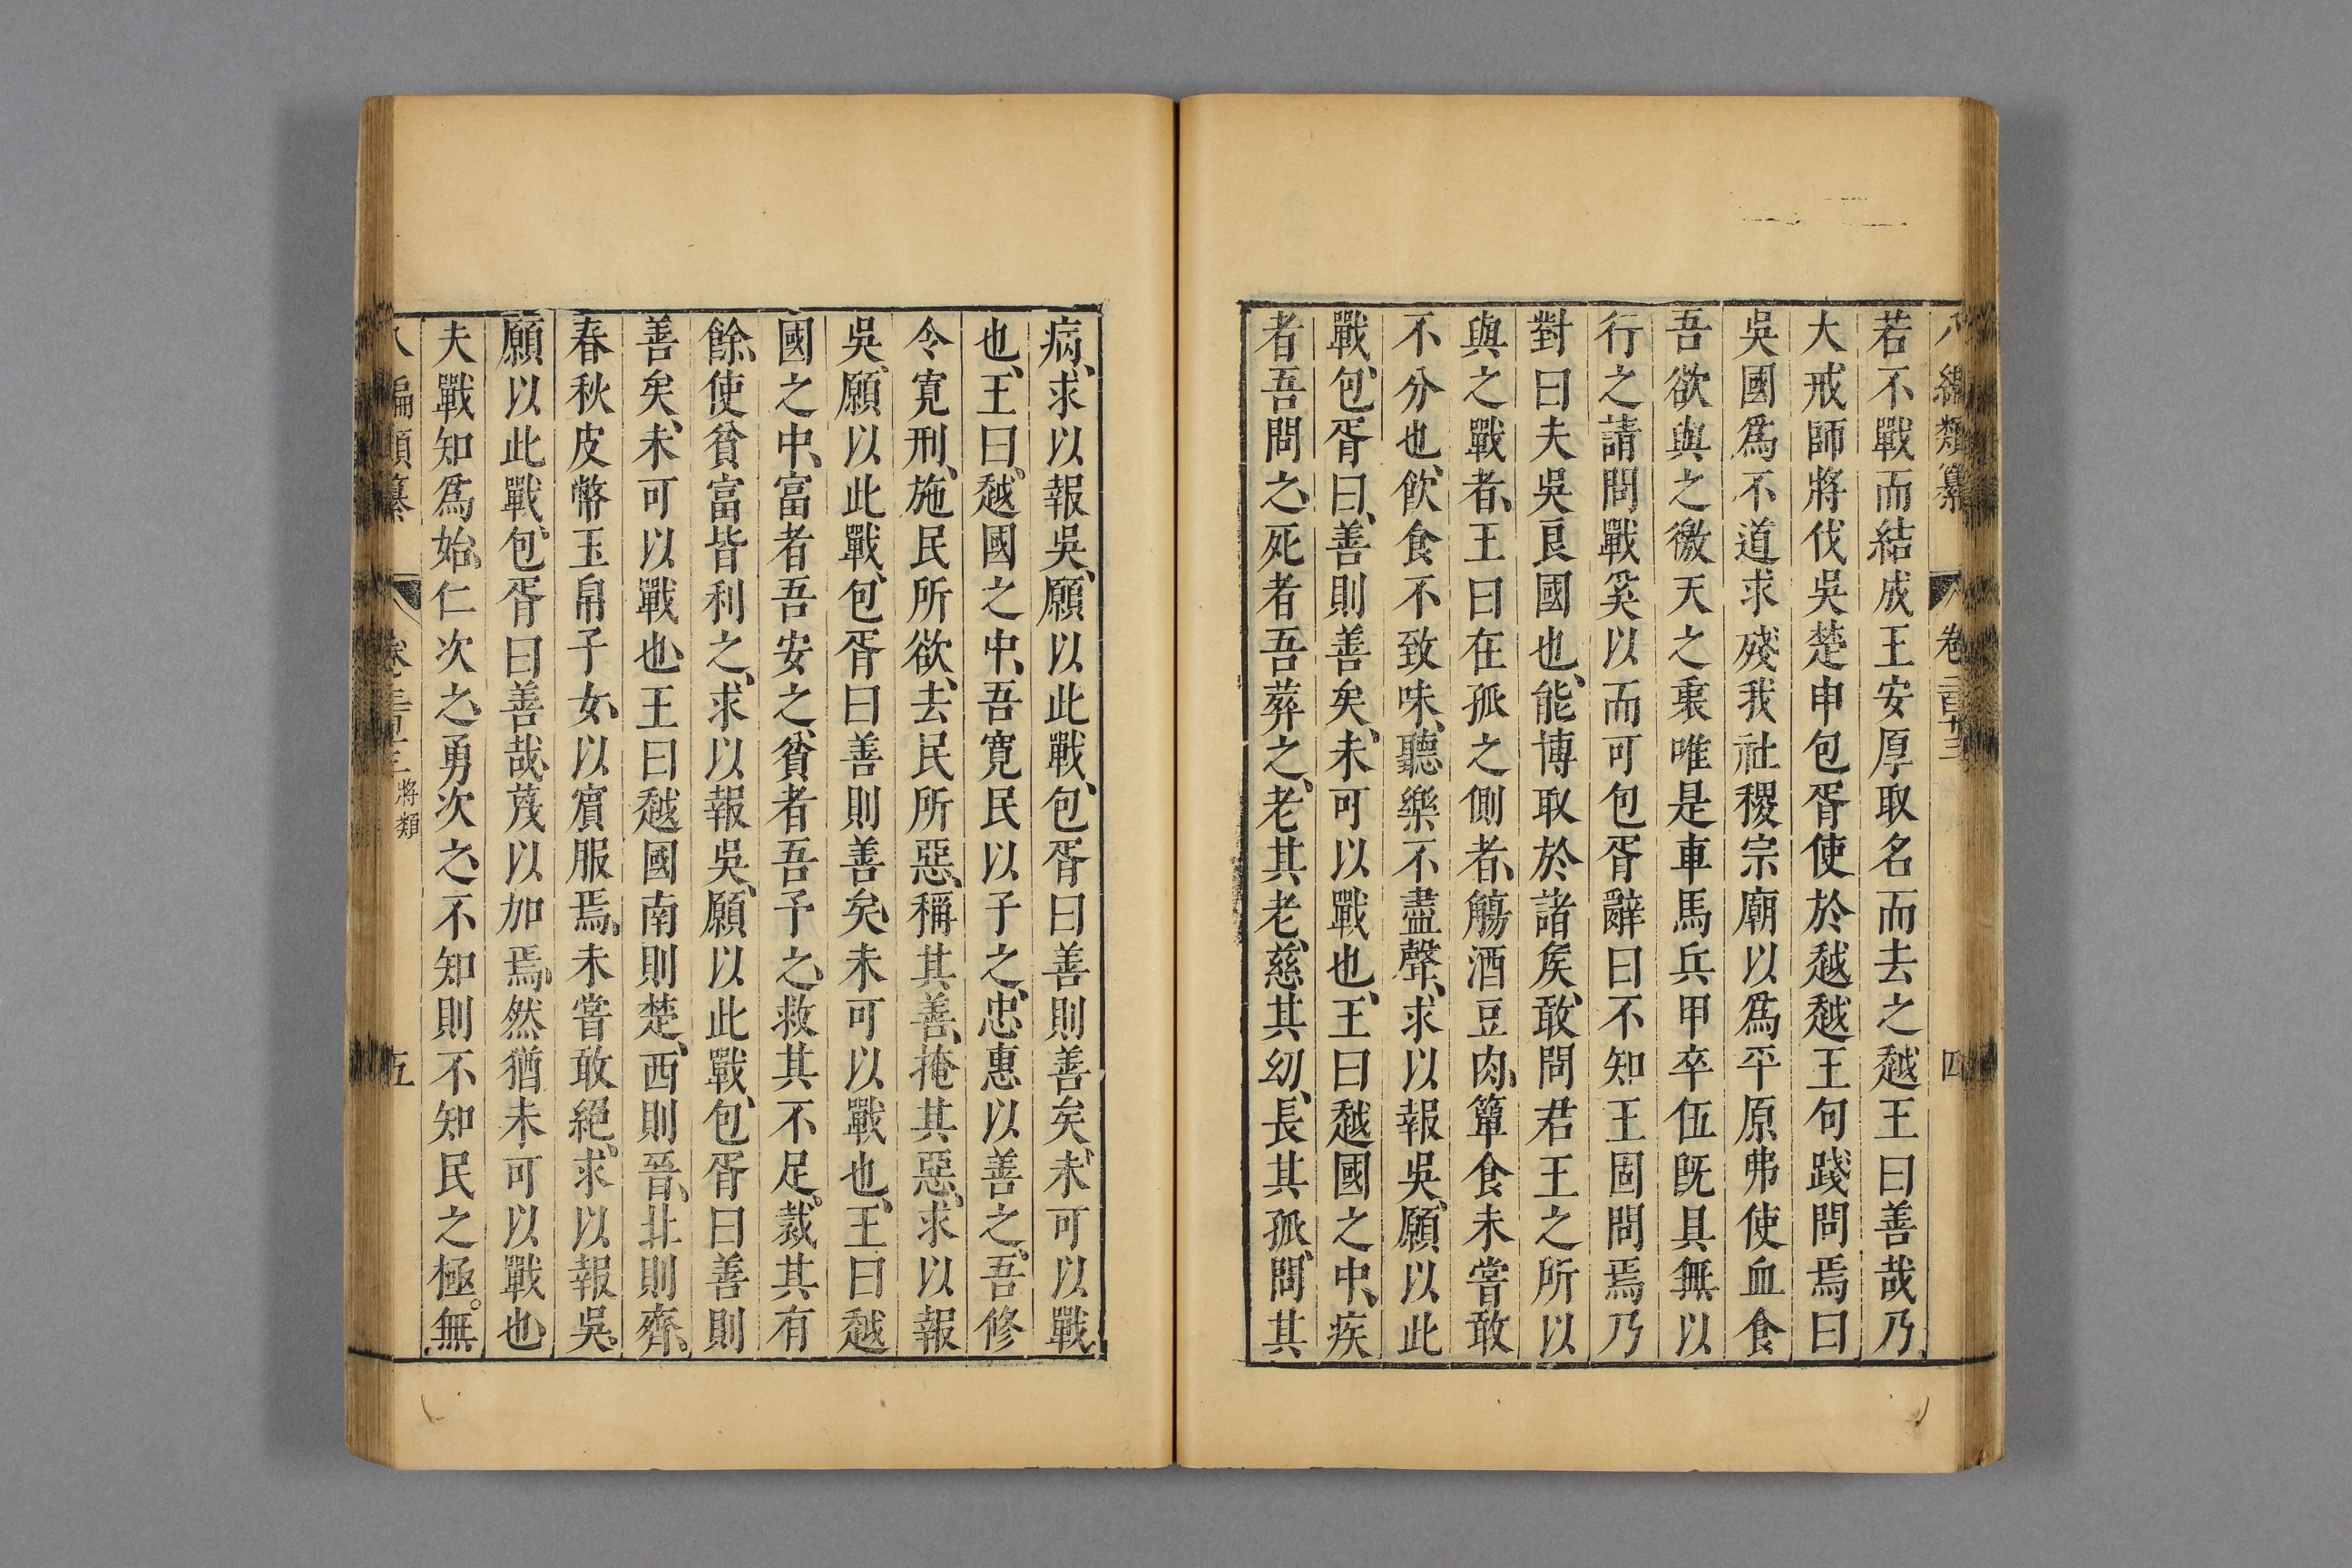 八編類纂 卷二百廿三 四
若不戰而結成王安厚取名而去之越王曰善哉乃
大戒師將伐吳楚申包胥使於越越王句踐問焉曰
吳國爲不道求殘我社稷宗廟以爲平原弗使血食
吾欲與之徼天之衷唯是車馬兵甲卒伍旣具無以
行之請問戰奚以而可包胥辭曰不知王固問焉乃
對曰夫吳良國也、能博取於諸矦、敢問君王之所以
與之戰者、王曰在孤之側者、觴酒豆肉、簞食未嘗敢
不分也、飮食不致味、聽樂不盡聲、求以報吳、願以此
戰、包胥曰、善則善矣、未可以戰也、王曰越國之中、疾
者吾問之、死者吾葬之、老其老、慈其幼、長其孤、問其
病、求以報吳、願以此戰、包胥曰善則善矣、未可以戰
也、王曰、越國之中、吾寛民以子之、忠惠以善之、吾修
令寛刑、施民所欲、去民所惡、稱其善、掩其惡、求以報
吳、願以此戰、包胥曰善則善矣、未可以戰也、王曰越
國之中、富者吾安之、貧者吾予之、救其不足。裁其有
餘、使貧富皆利之、求以報吳、願以此戰、包胥曰善則
善矣、未可以戰也、王曰越國南則楚、西則晉、北則齊、
春秋皮幣玉帛子女、以賓服焉。未嘗敢絕。求以報吳。
願以此戰、包胥曰善哉、蔑以加焉、然猶未可以戰也、
夫戰知爲始、仁次之、勇次之、不知則不知民之極。無
八編類纂 卷二百廿三 將類 五